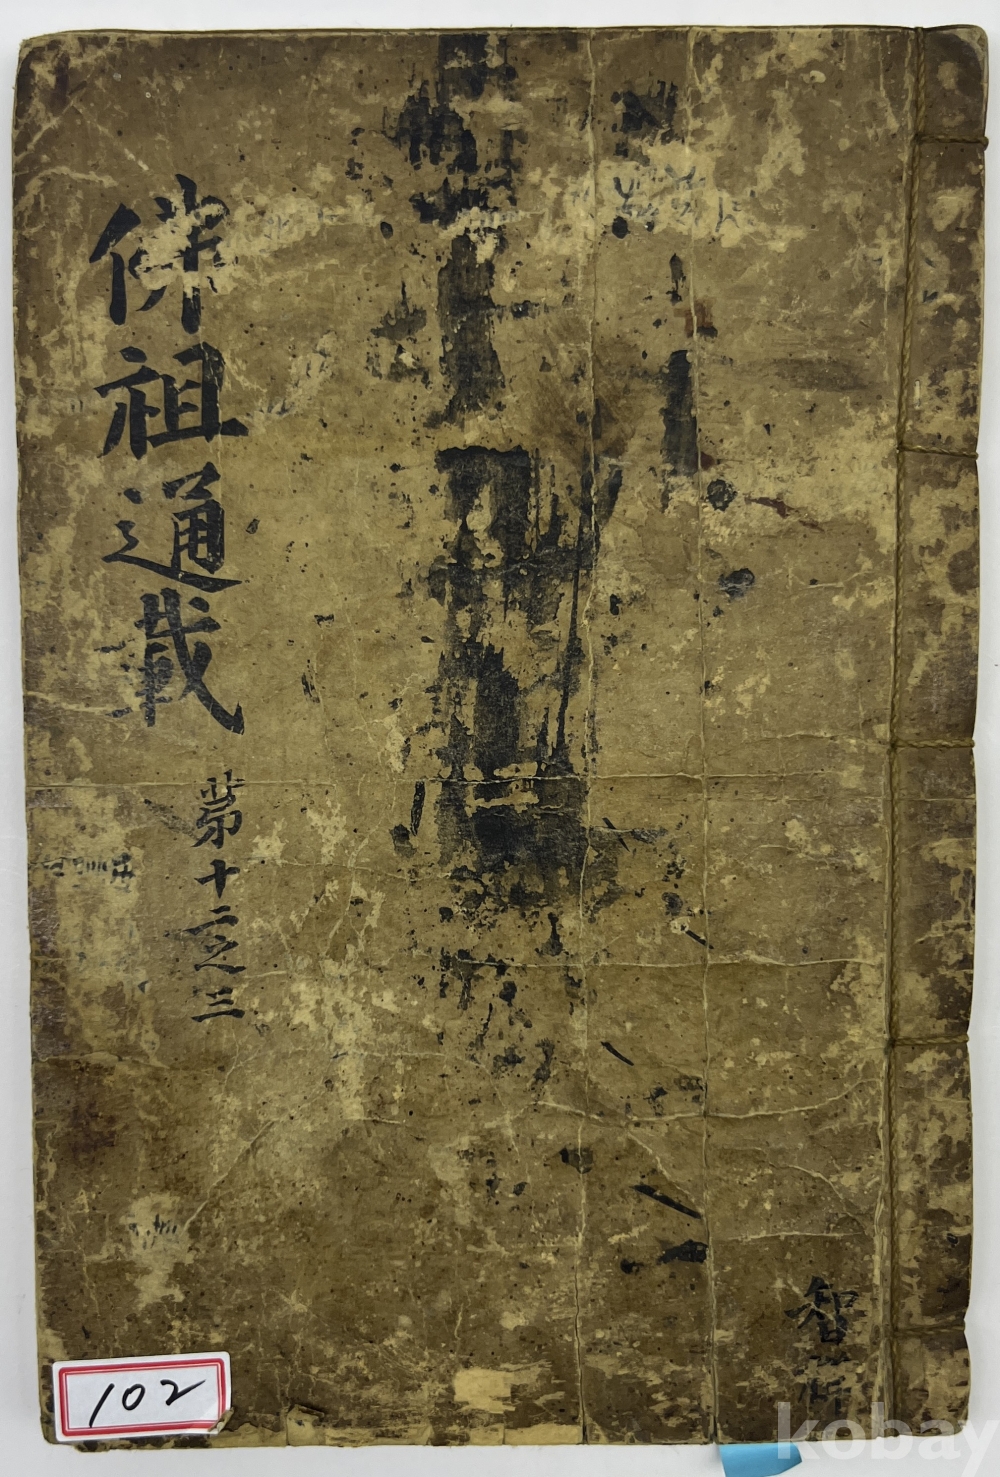 佛祖通載
第十二之三
智
102
kobay